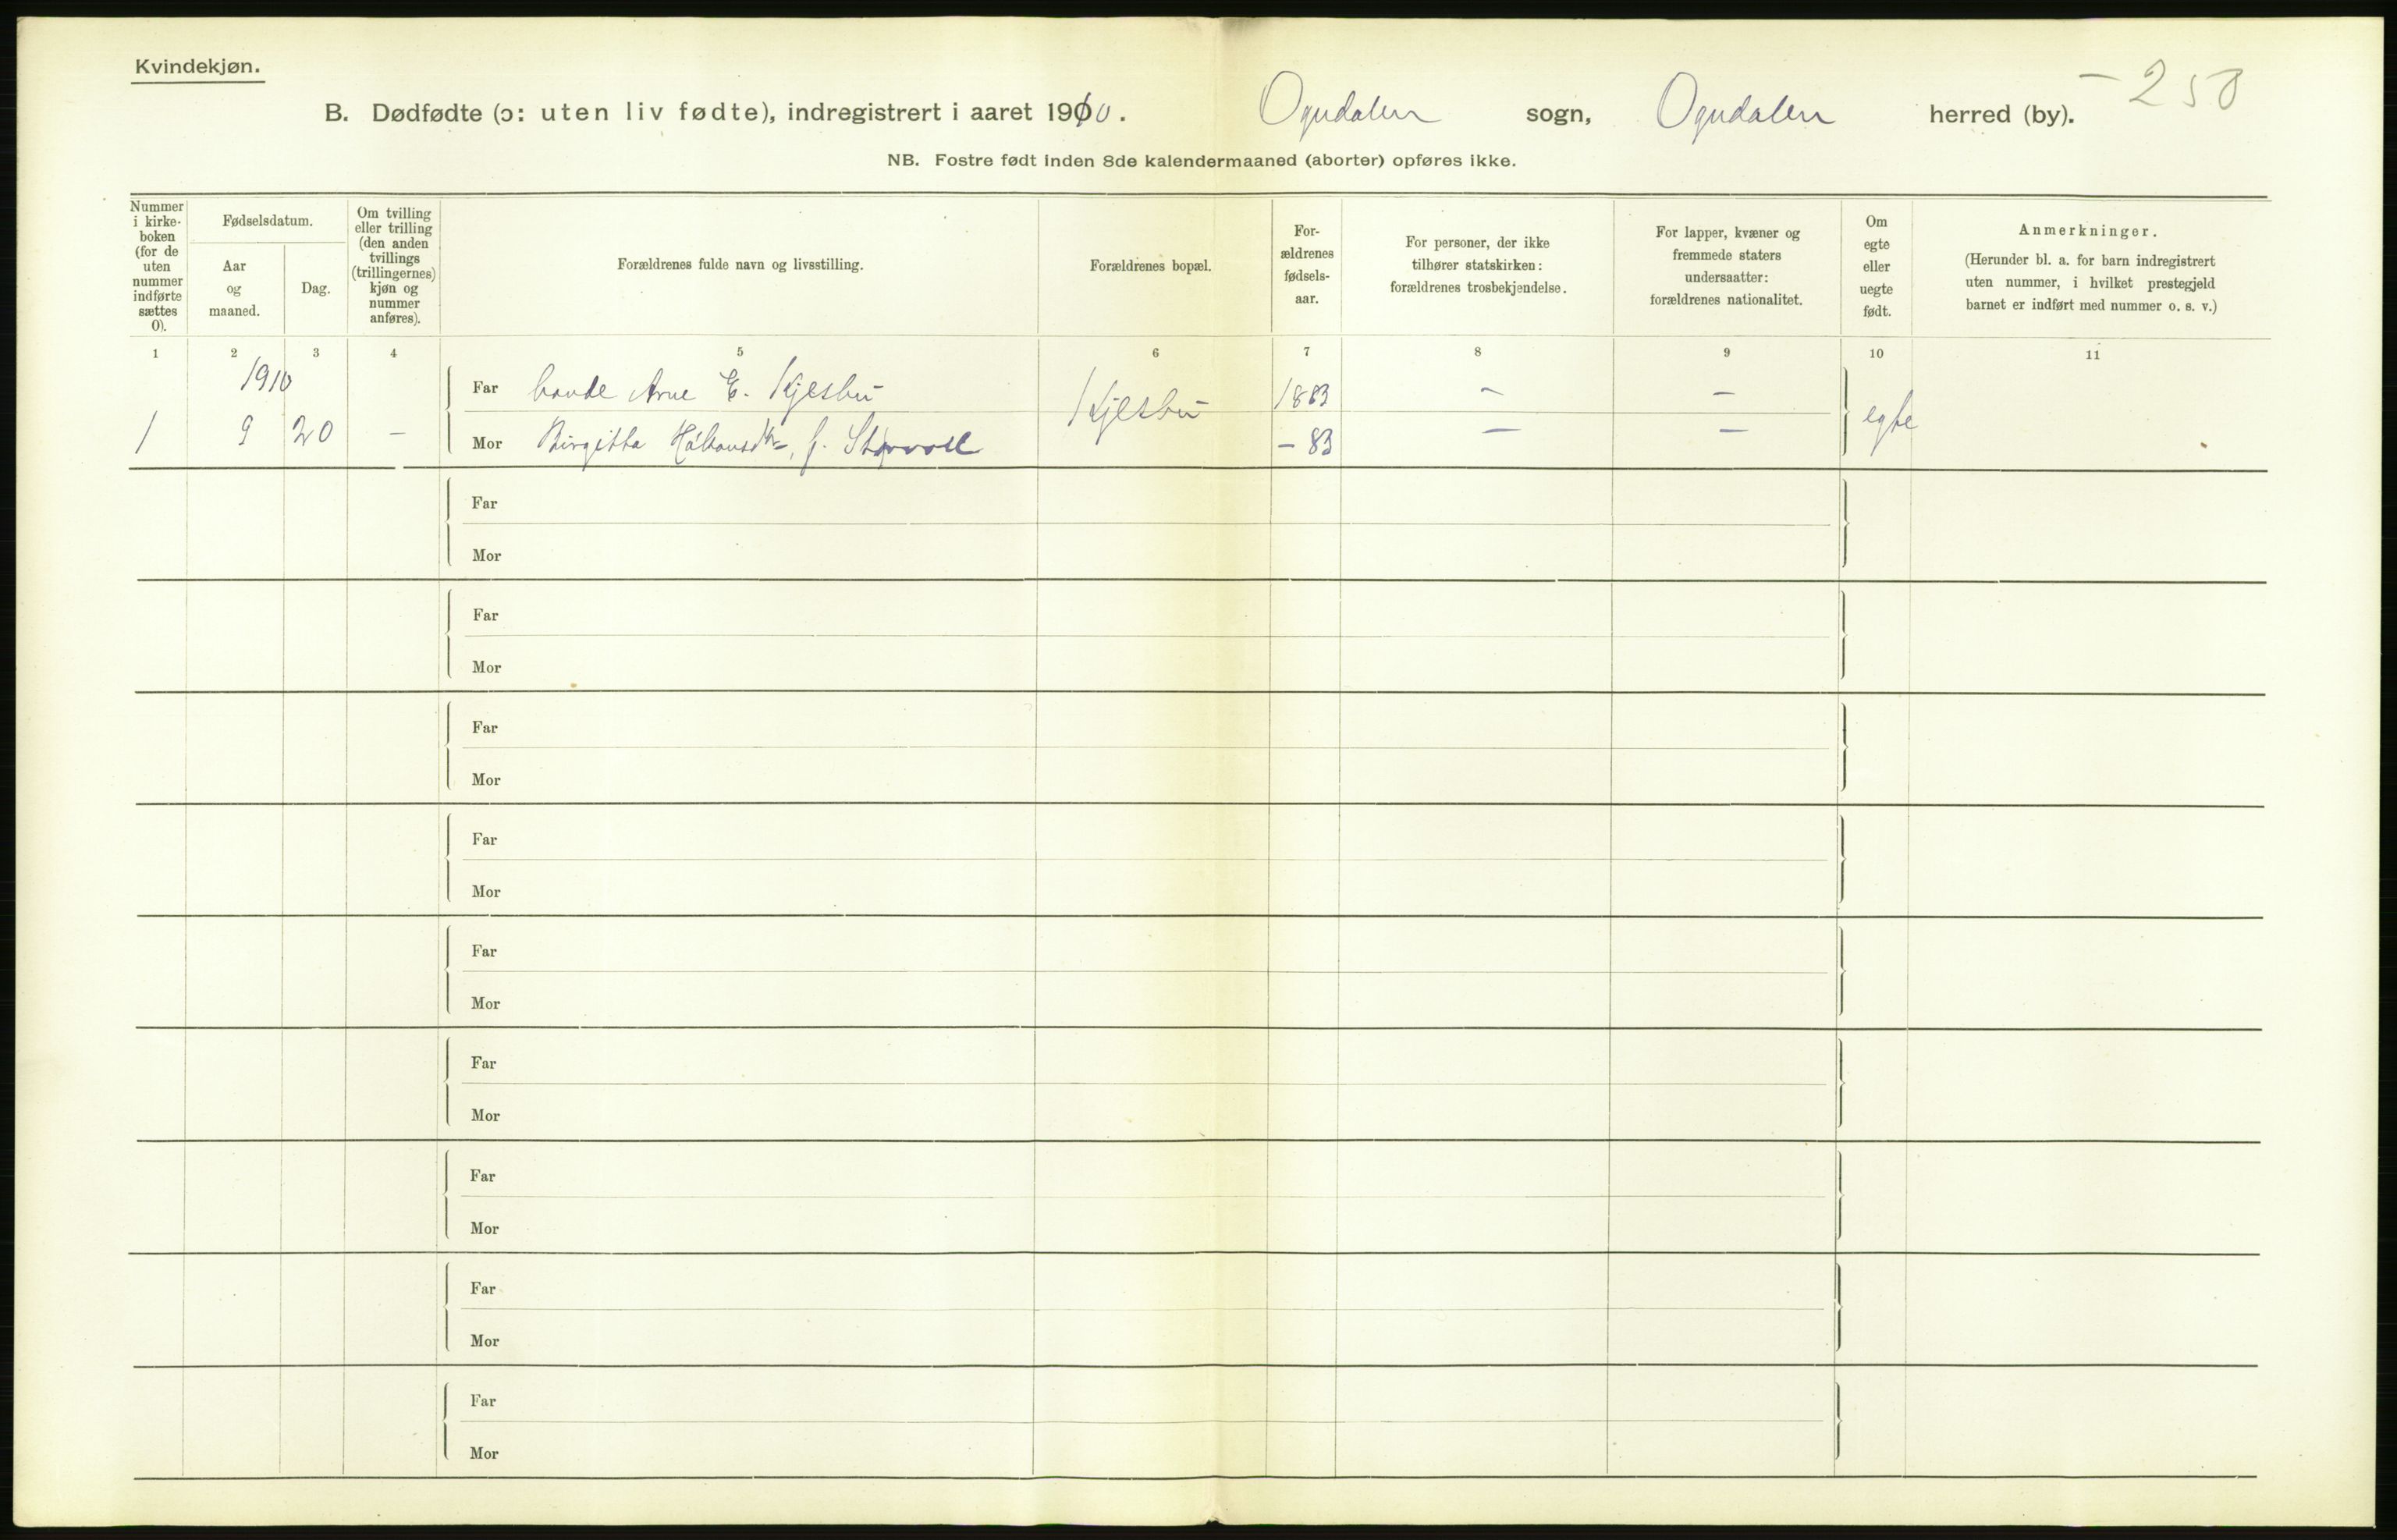 Kvindekjøn.
- 258
B. Dødfødte (ɔ: uten liv fødte), indregistrert i aaret 1910. Ogndalen sogn, Ogndalen herred (by).
NB. Fostre født inden 8de kalendermaaned (aborter) opføres ikke.
Nummer i kirke-boken (for de uten nummer indførte sættes 0).
Fødselsdatum.
Aar og maaned.
Dag.
Om tvilling eller trilling (den anden tvillings (trillingernes) kjøn og nummer anføres).
Forældrenes fulde navn og livsstilling.
Forældrenes bopæl.
For-ældrenes fødsels-aar.
For personer, der ikke tilhører statskirken: forældrenes trosbekjendelse.
For lapper, kvæner og fremmede staters undersaatter: forældrenes nationalitet.
Om egte eller uegte født.
Anmerkninger.
(Herunder bl. a. for barn indregistrert uten nummer, i hvilket prestegjeld barnet er indført med nummer o. s. v.)
1 2 3 4 5 6 7 8 9 10 11
1910
Far Arne E. Kjesbu Kjesbu 1883 - -
1 9 20 - Mor Birgitta f. Storvoll - 83 - - egte
Far
Mor
Far
Mor
Far
Mor
Far
Mor
Far
Mor
Far
Mor
Far
Mor
Far
Mor
Far
Mor